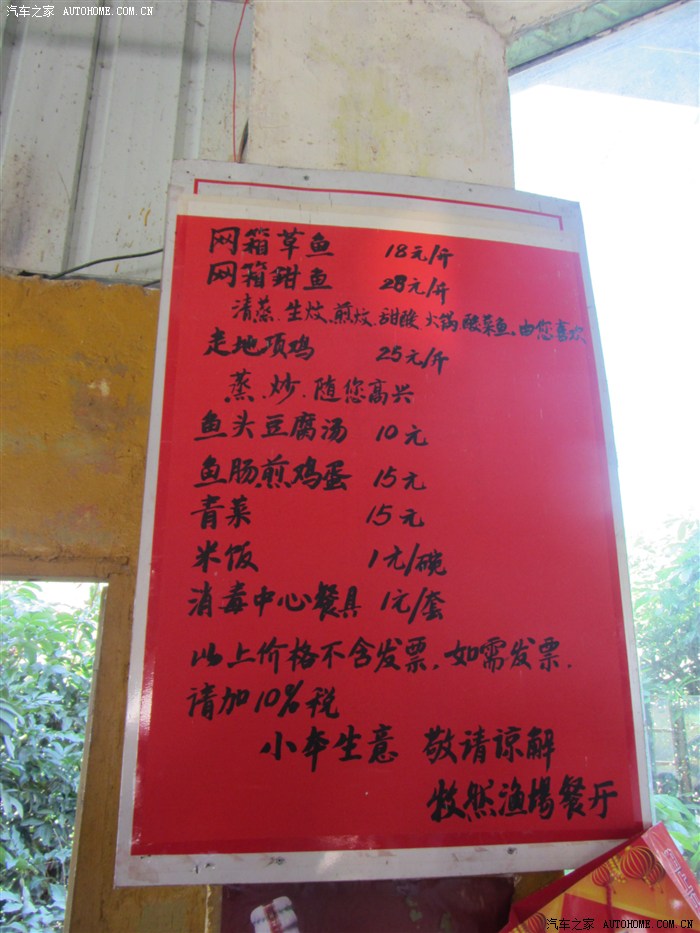 汽车之家 AUTOHOME.COM.CN
网箱草鱼 18元/斤
网箱鉗鱼 28元/斤
清蒸.生炆.煎炆.甜酸.火锅酸菜鱼.由您喜欢
走地项鸡 25元/斤
蒸.炒.随您高兴
鱼头豆腐汤 10元
鱼肠煎鸡蛋 15元
青菜 15元
米饭 1元/碗
消毒中心餐具 1元/套
以上价格不含发票.如需发票.
请加10%税
小本生意 敬请谅解
牧然渔場餐厅
汽车之家 AUTOHOME.COM.CN